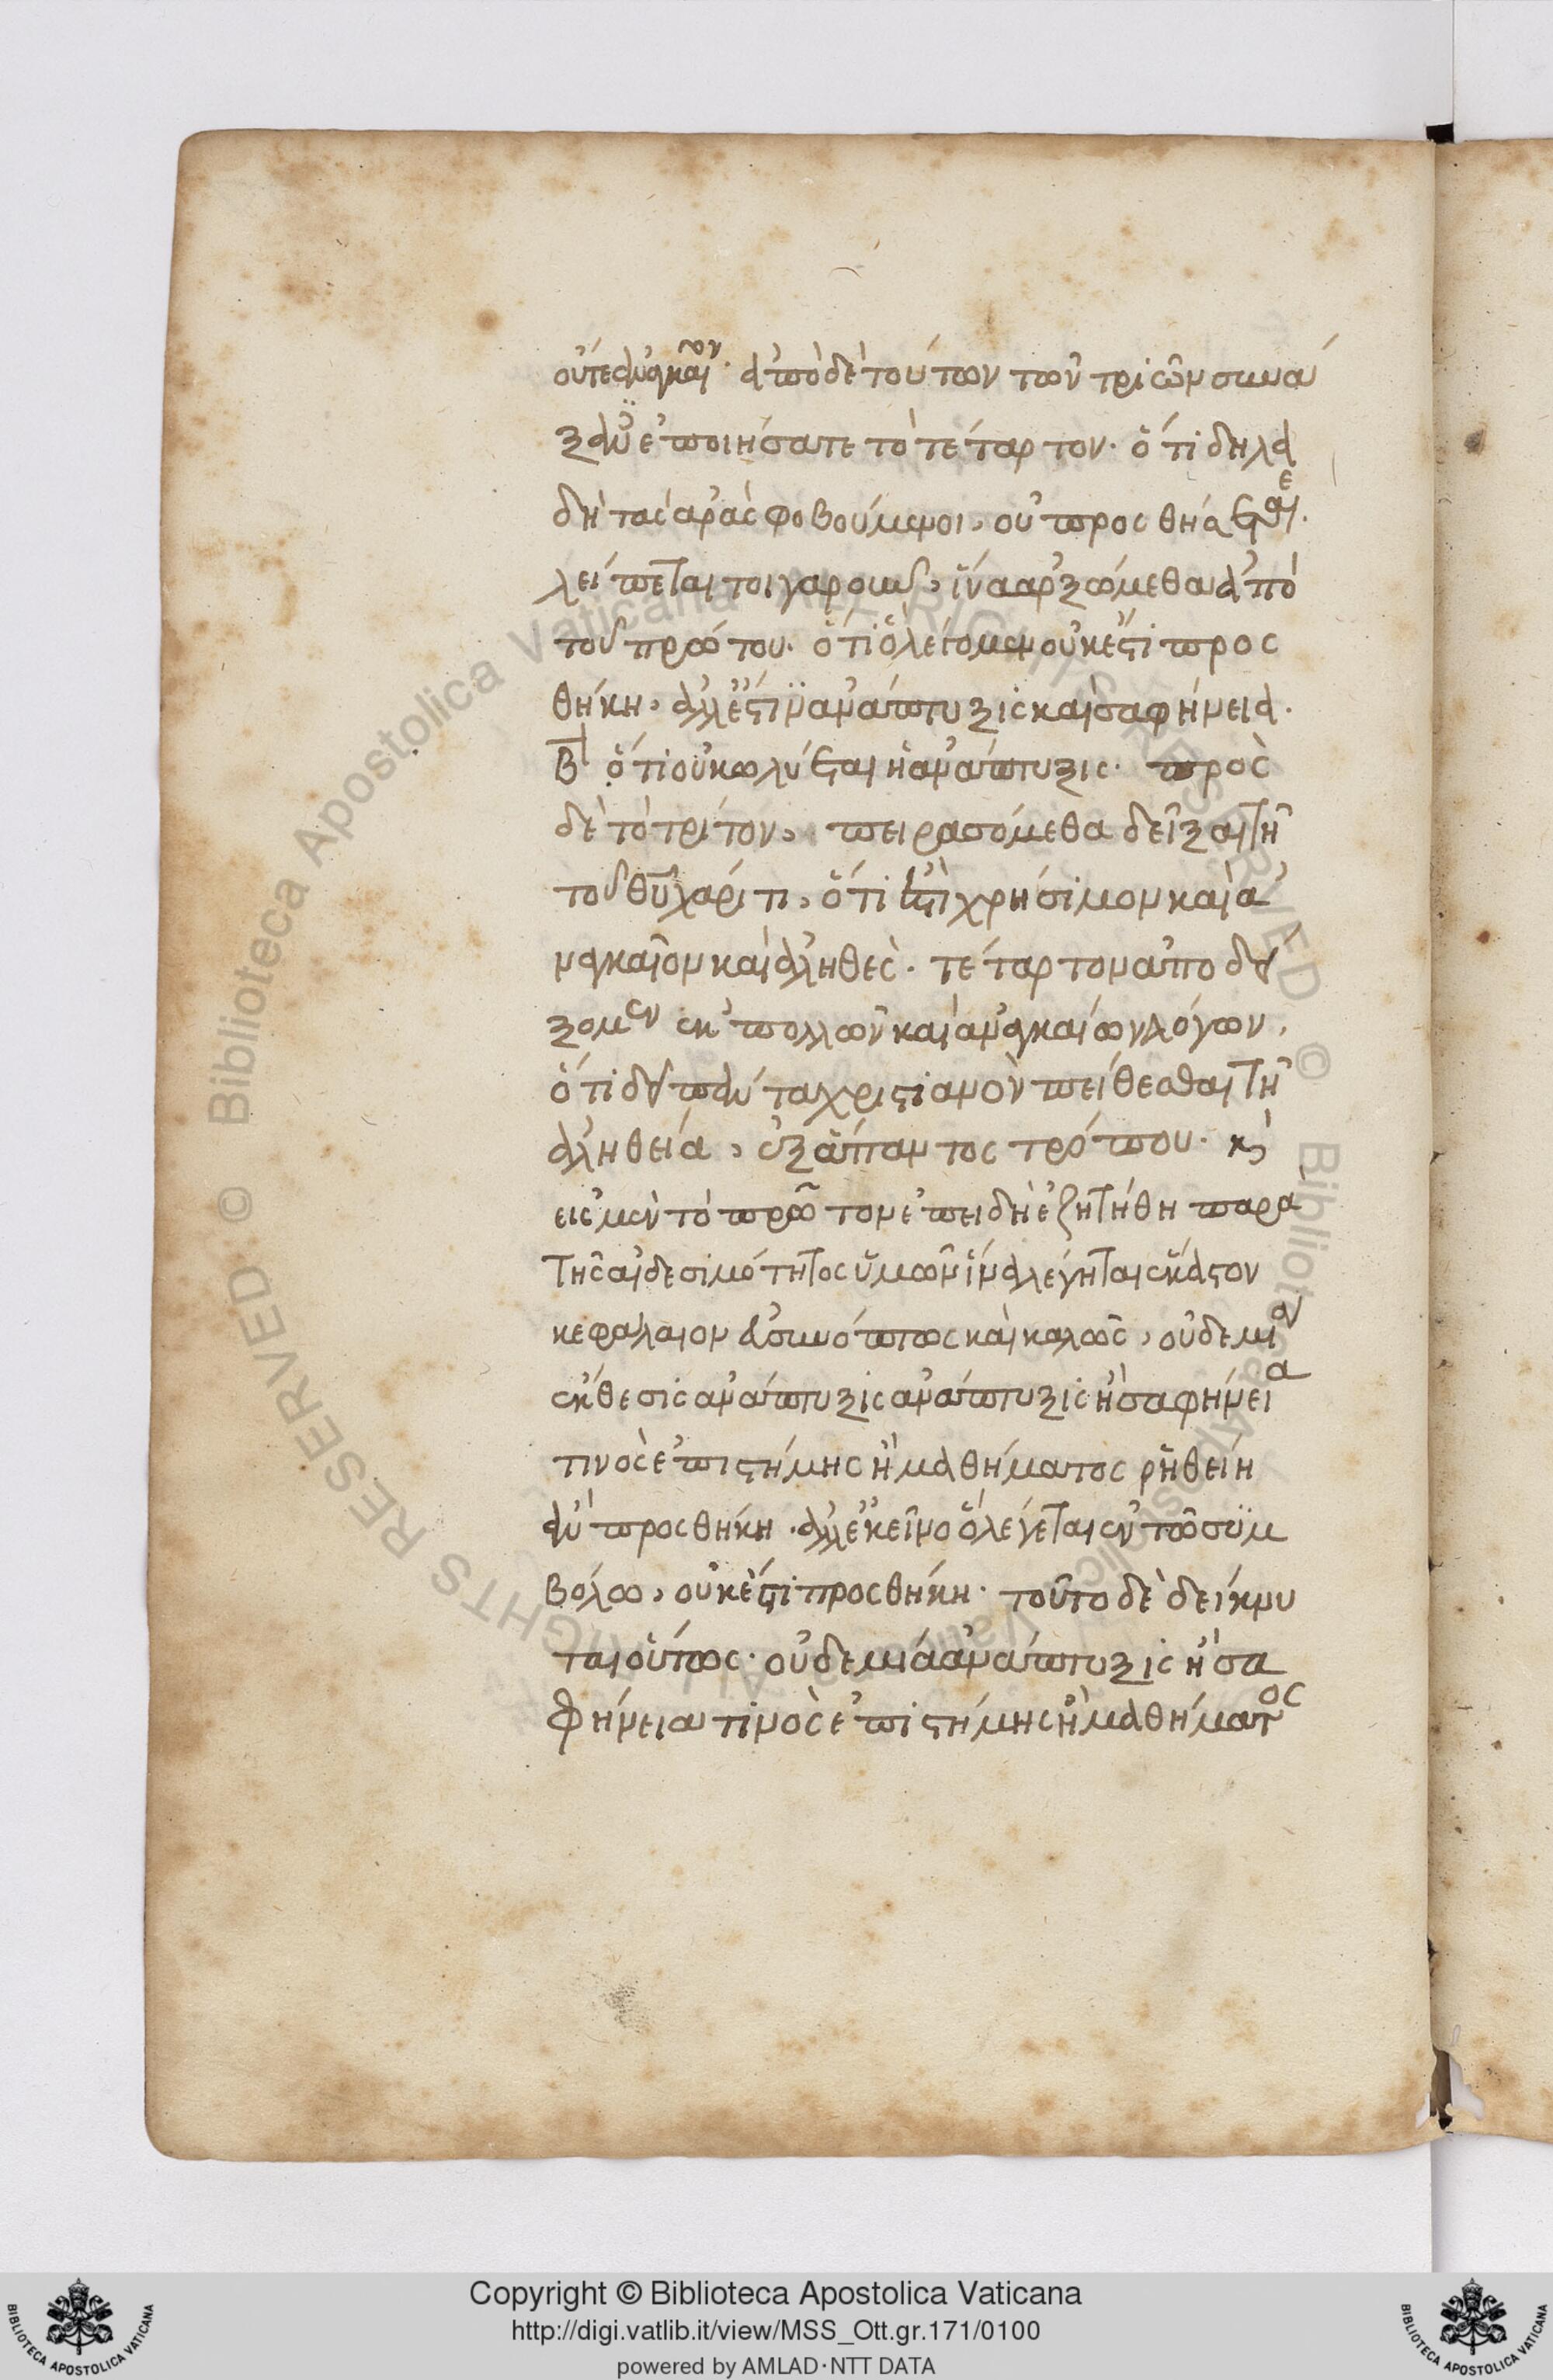 οὔτε ἀναγκαῖον. ἀπὸ δὲ τούτων τῶν τριῶν συνά
ξαι ἐποιήσατε τὸ τέταρτον. ὅτι δηλα
δὴ τὰς ἀρὰς φοβούμενοι, οὐ προσθήσετε.
λείπεται τοιγαροῦν, ἵνα ἀρξώμεθα ἀπὸ
τοῦ πρώτου. ὅτι ὃ λέγομεν οὐκ ἔστι προσ
θήκη, ἀλλ' ἔστιν ἀνάπτυξις καὶ σαφήνεια.
β ὅτι οὐ κωλύεται ἡ ἀνάπτυξις. πρὸς
δὲ τὸ τρίτον, πειρασόμεθα δεῖξαι τῇ
τοῦ θυ χάριτι, ὅτι ἐστὶ χρήσιμον καὶ ἀ
ναγκαῖον καὶ ἀληθές. τέταρτον ἀποδεί
ξομεν ἐκ πολλῶν καὶ ἀναγκαίων λόγων,
ὅτι δεῖ πάντα χριστιανὸν πείθεσθαι τῇ
ἀληθείᾳ, ἐξ ἅπαντος τρόπου. καὶ
εἰς μὲν τὸ πρῶτον ἐπειδὴ ἐζητήθη παρὰ
τῆς αἰδεσιμότητος ὑμῶν ἵνα λέγηται ἕκαστον
κεφάλαιον εὐσυνόπτως καὶ καλῶς, οὐδεμία
ἔκθεσις ἀνάπτυξις ἀνάπτυξις ἢ σαφήνεια
τινὸς ἐπιστήμης ἢ μαθήματος ῥηθείη
ἂν προσθήκη. ἀλλ' ἐκεῖνο ὃ λέγεται ἐν τῷ συμ
βόλῳ, οὐκ ἔστι προσθήκη. τοῦτο δὲ δείκνυ
ται οὕτως. οὐδεμία ἀνάπτυξις ἢ σα
φήνεια τινὸς ἐπιστήμης ἢ μαθήματος
Copyright © Biblioteca Apostolica Vaticana
http://digi.vatlib.it/view/MSS_Ott.gr.171/0100
powered by AMLAD·NTT DATA